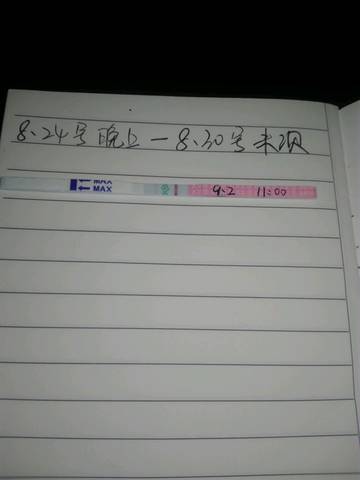 8.24号晚上一8.30号未测
MAX
MAX
9.2 11:00